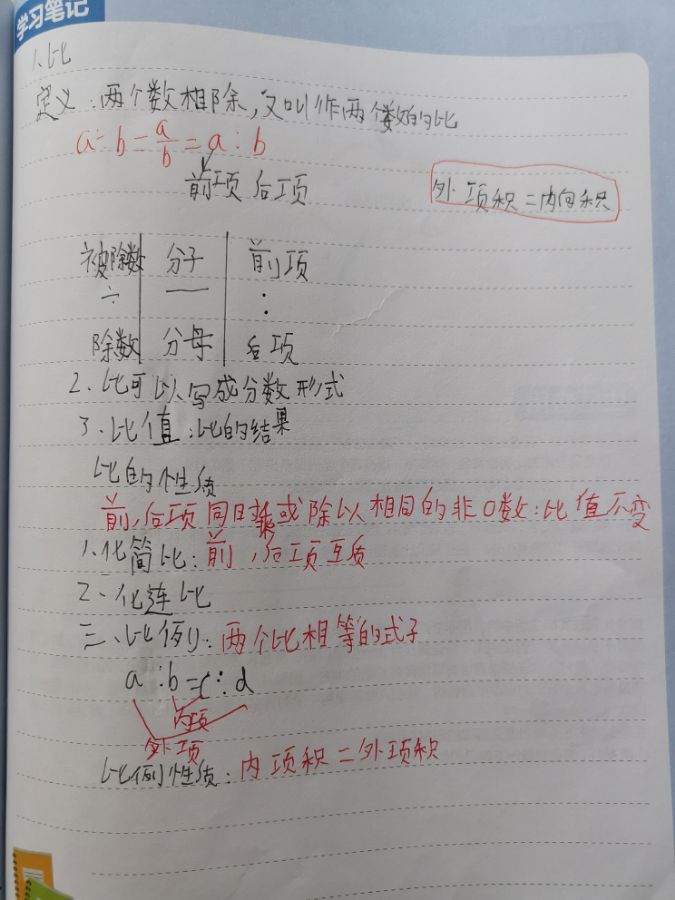 学习笔记
1、比
定义：两个数相除，又叫作两个数的比
a÷b=a/b=a：b
前项 后项
外项积=内向积
被除数 | 分子 | 前项
÷ | — | ：
除数 | 分母 | 后项
2、比可以写成分数形式
3、比值：比的结果
比的性质
前，后项同时乘或除以相同的非0数：比值不变
1、化简比：前，后项互质
2、化连比
三、比例：两个比相等的式子
a：b=c：d
内项
外项
比例性质：内项积=外项积